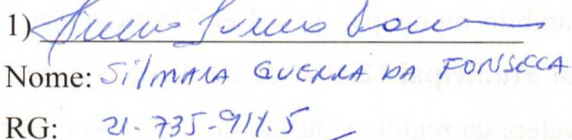 1)
Nome: Silmara Guerra da Fonseca
RG: 21.735-911.5